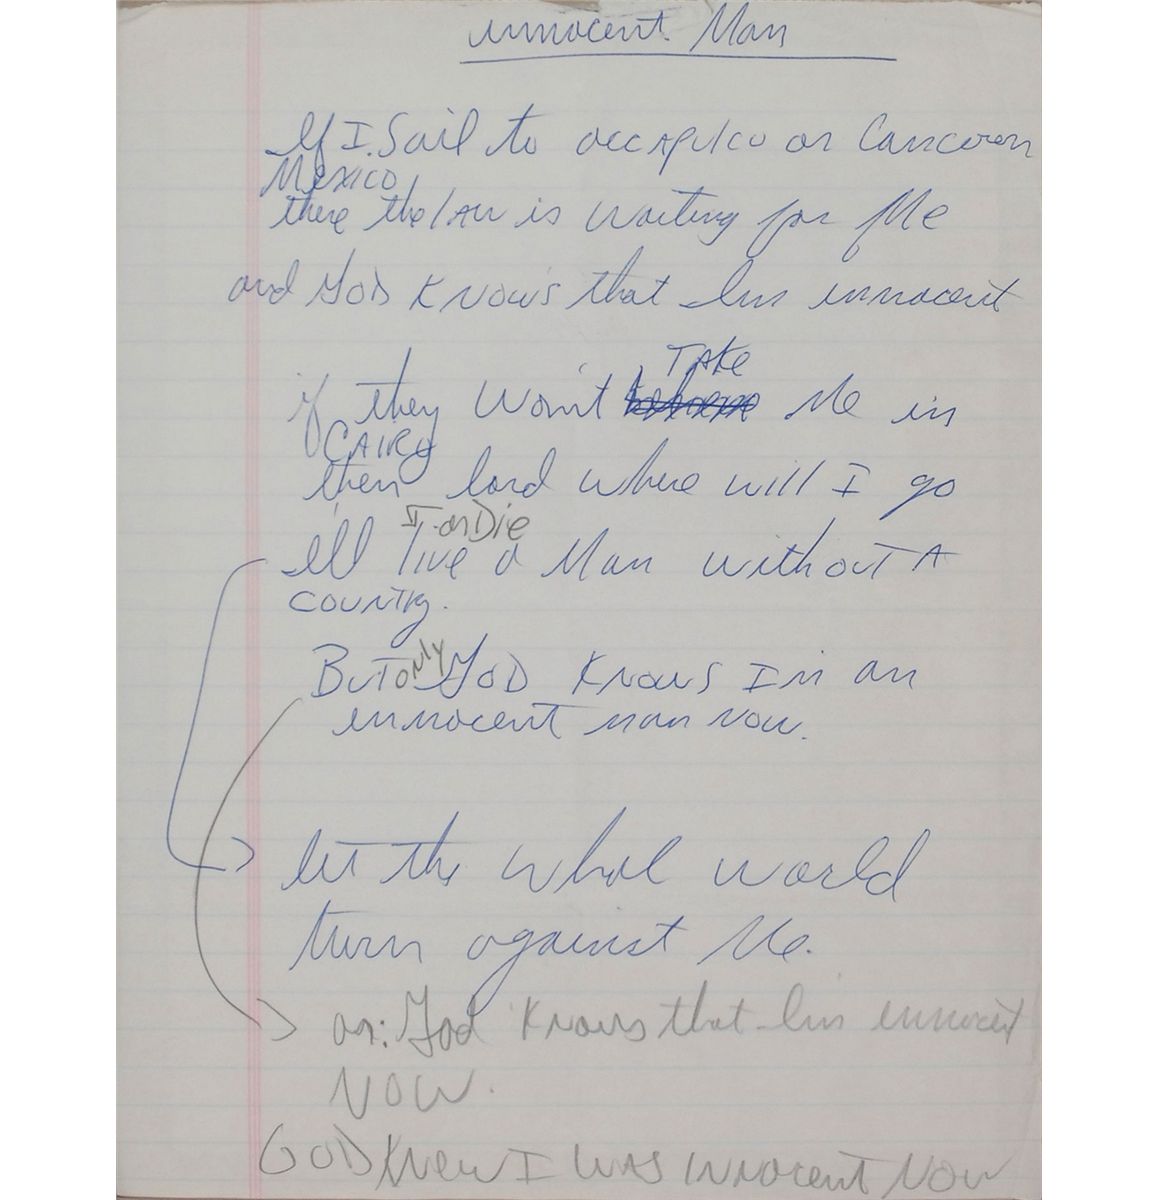 innocent Man
If I Sail to accApulco or Cancoon
MExICO
there the lAw is waiting for Me
and GOD Knows that Im innocent
TAke
if they Won't Me in
CAIRO
then lord where will I go
I or Die
I'll live a Man without A
COUNTRy.
BuT ONly GOD Knows Im an
innocent man now.
let the whol world
turn against Me.
or: God Knows that Im innocent
NOW.
GOD Knew I WAS INNocent NOW